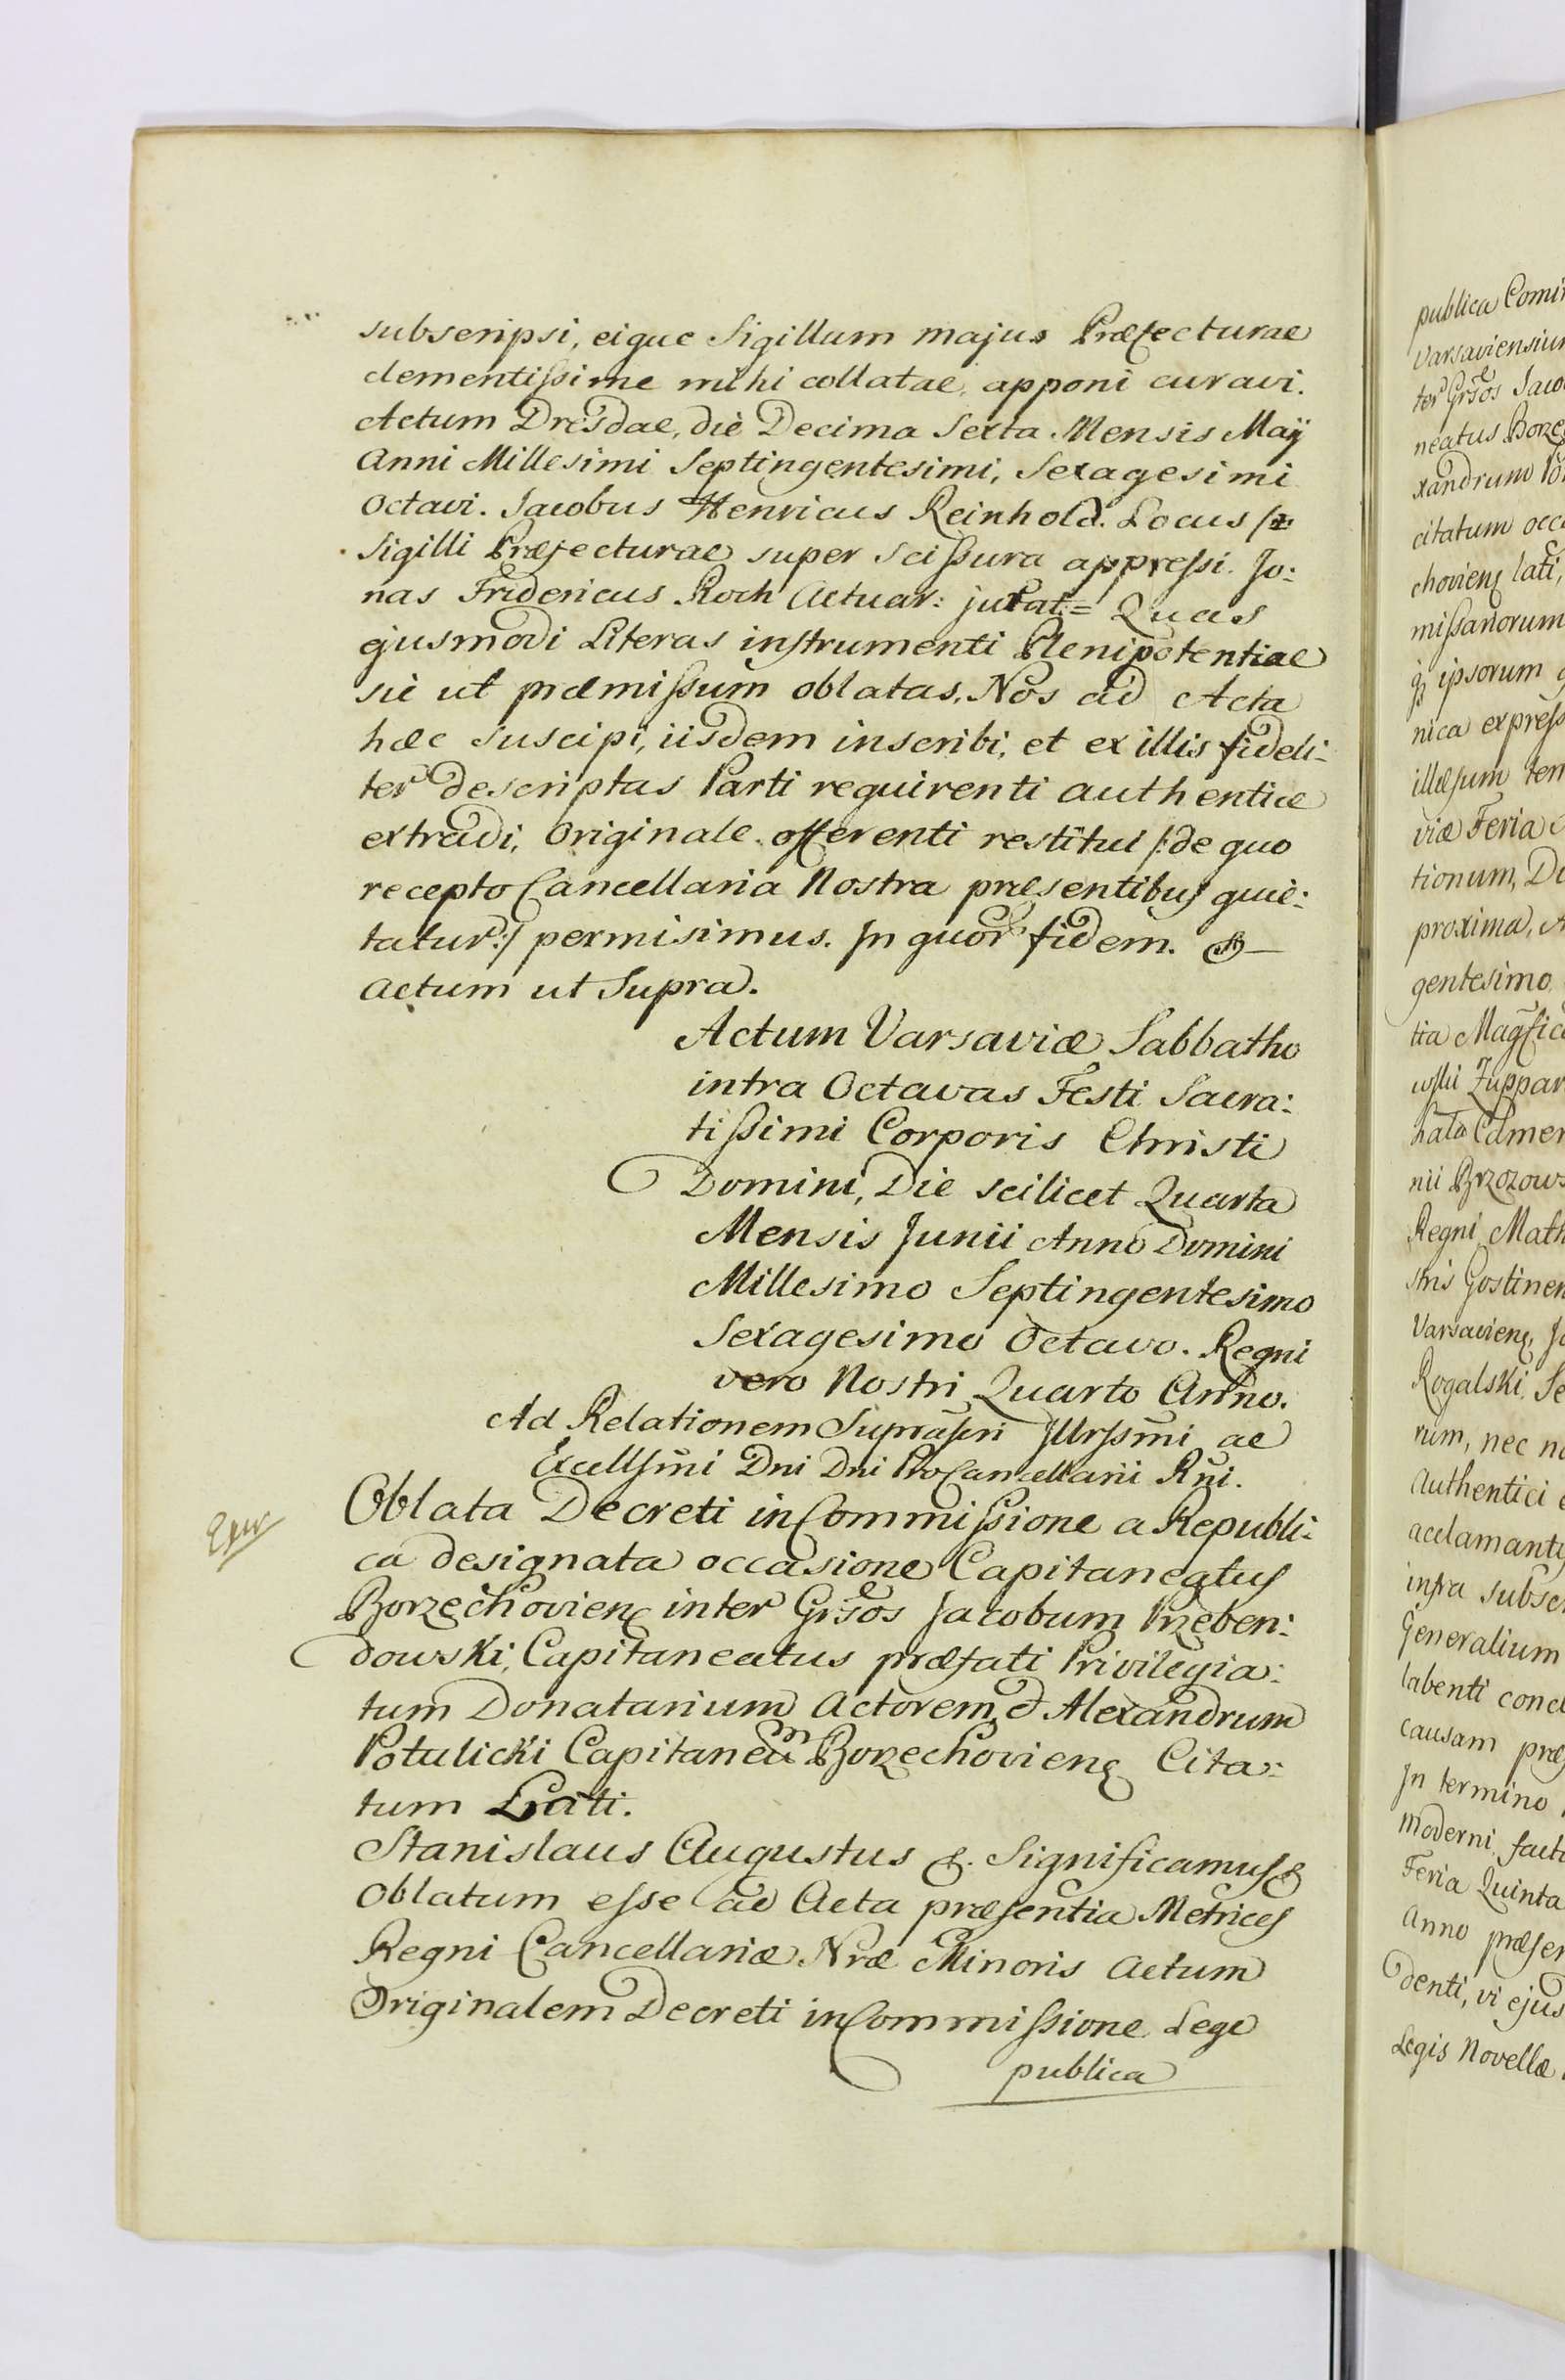 subscripsi, eique Sigillum majus Præfecturae
clementissime mihi collatae, apponi curavi.
Actum Dresdae, die Decima Sexta Mensis Maÿ
Anni Millesimi Septingentesimi, Sexagesimi
Octavi. Jacobus Henricus Reinhold. Locus
Sigilli Præfecturae super Scissura appressi. Jo:
nas Fridericus Koch Actuar: jurat:= Quas
ejusmodi Literas instrumenti Plenipotentiae
sic ut præmissum oblatas, Nos ad Acta
hæc suscipi, iisdem inscribi, et ex illis fideli:
ter descriptas Parti requirenti authentice
extradi, Originale offerenti restitui /: de quo
recepto Cancellaria Nostra præsentibus quie:
tatur :/ permisimus. In quor fidem. &
Actum ut Supra.
Actum Varsaviæ Sabbatho
intra Octavas Festi Sacra:
tissimi Corporis Christi
Domini, Die scilicet Quarta
Mensis Junii Anno Domini
Millesimo Septingentesimo
Sexagesimo Octavo. Regni
vero Nostri Quarto Anno.
Ad Relationem Suprascri Illrssmi ac
Excellsmi Dni Dni ProCancellarii Rni.
Oblata Decreti in Commissione a Republi:
ca designata occasione Capitaneatus
Borzechovien inter Grsos Jacobum Przeben:
dowski, Capitaneatus præfati Privilegia:
tum Donatarium Actorem & Alexandrum
Potulicki Capitaneum Borzechovien Cita:
tum Lati.
Stanislaus Augustus &. Significamus &
Oblatum esse ad Acta præsentia Metrices
Regni Cancellariæ Nræ Minoris Actum
Originalem Decreti in Commissione Lege
publica
publica Comi
Varsaviensiu
ter Grsos Jaco
neatus Borze
xandrum Po
citatum occ
chovien lati,
missariorum
ipsorum
nica express
illæsum ten
viæ Feria
tionum, Di
proxima, A
gentesimo
tia Magfic
wski Zuppar
nii Brzozows
Regni, Math
stris Gostinen
Varsavien, Jo
Rogalski, Se
rum, nec no
Authentici
acclamant
infra subsc
Generalium
labenti concl
causam præ
In termino
moderni, fact
Feria Quinta
Anno præsen
denti, vi ejus
Legis Novellæ